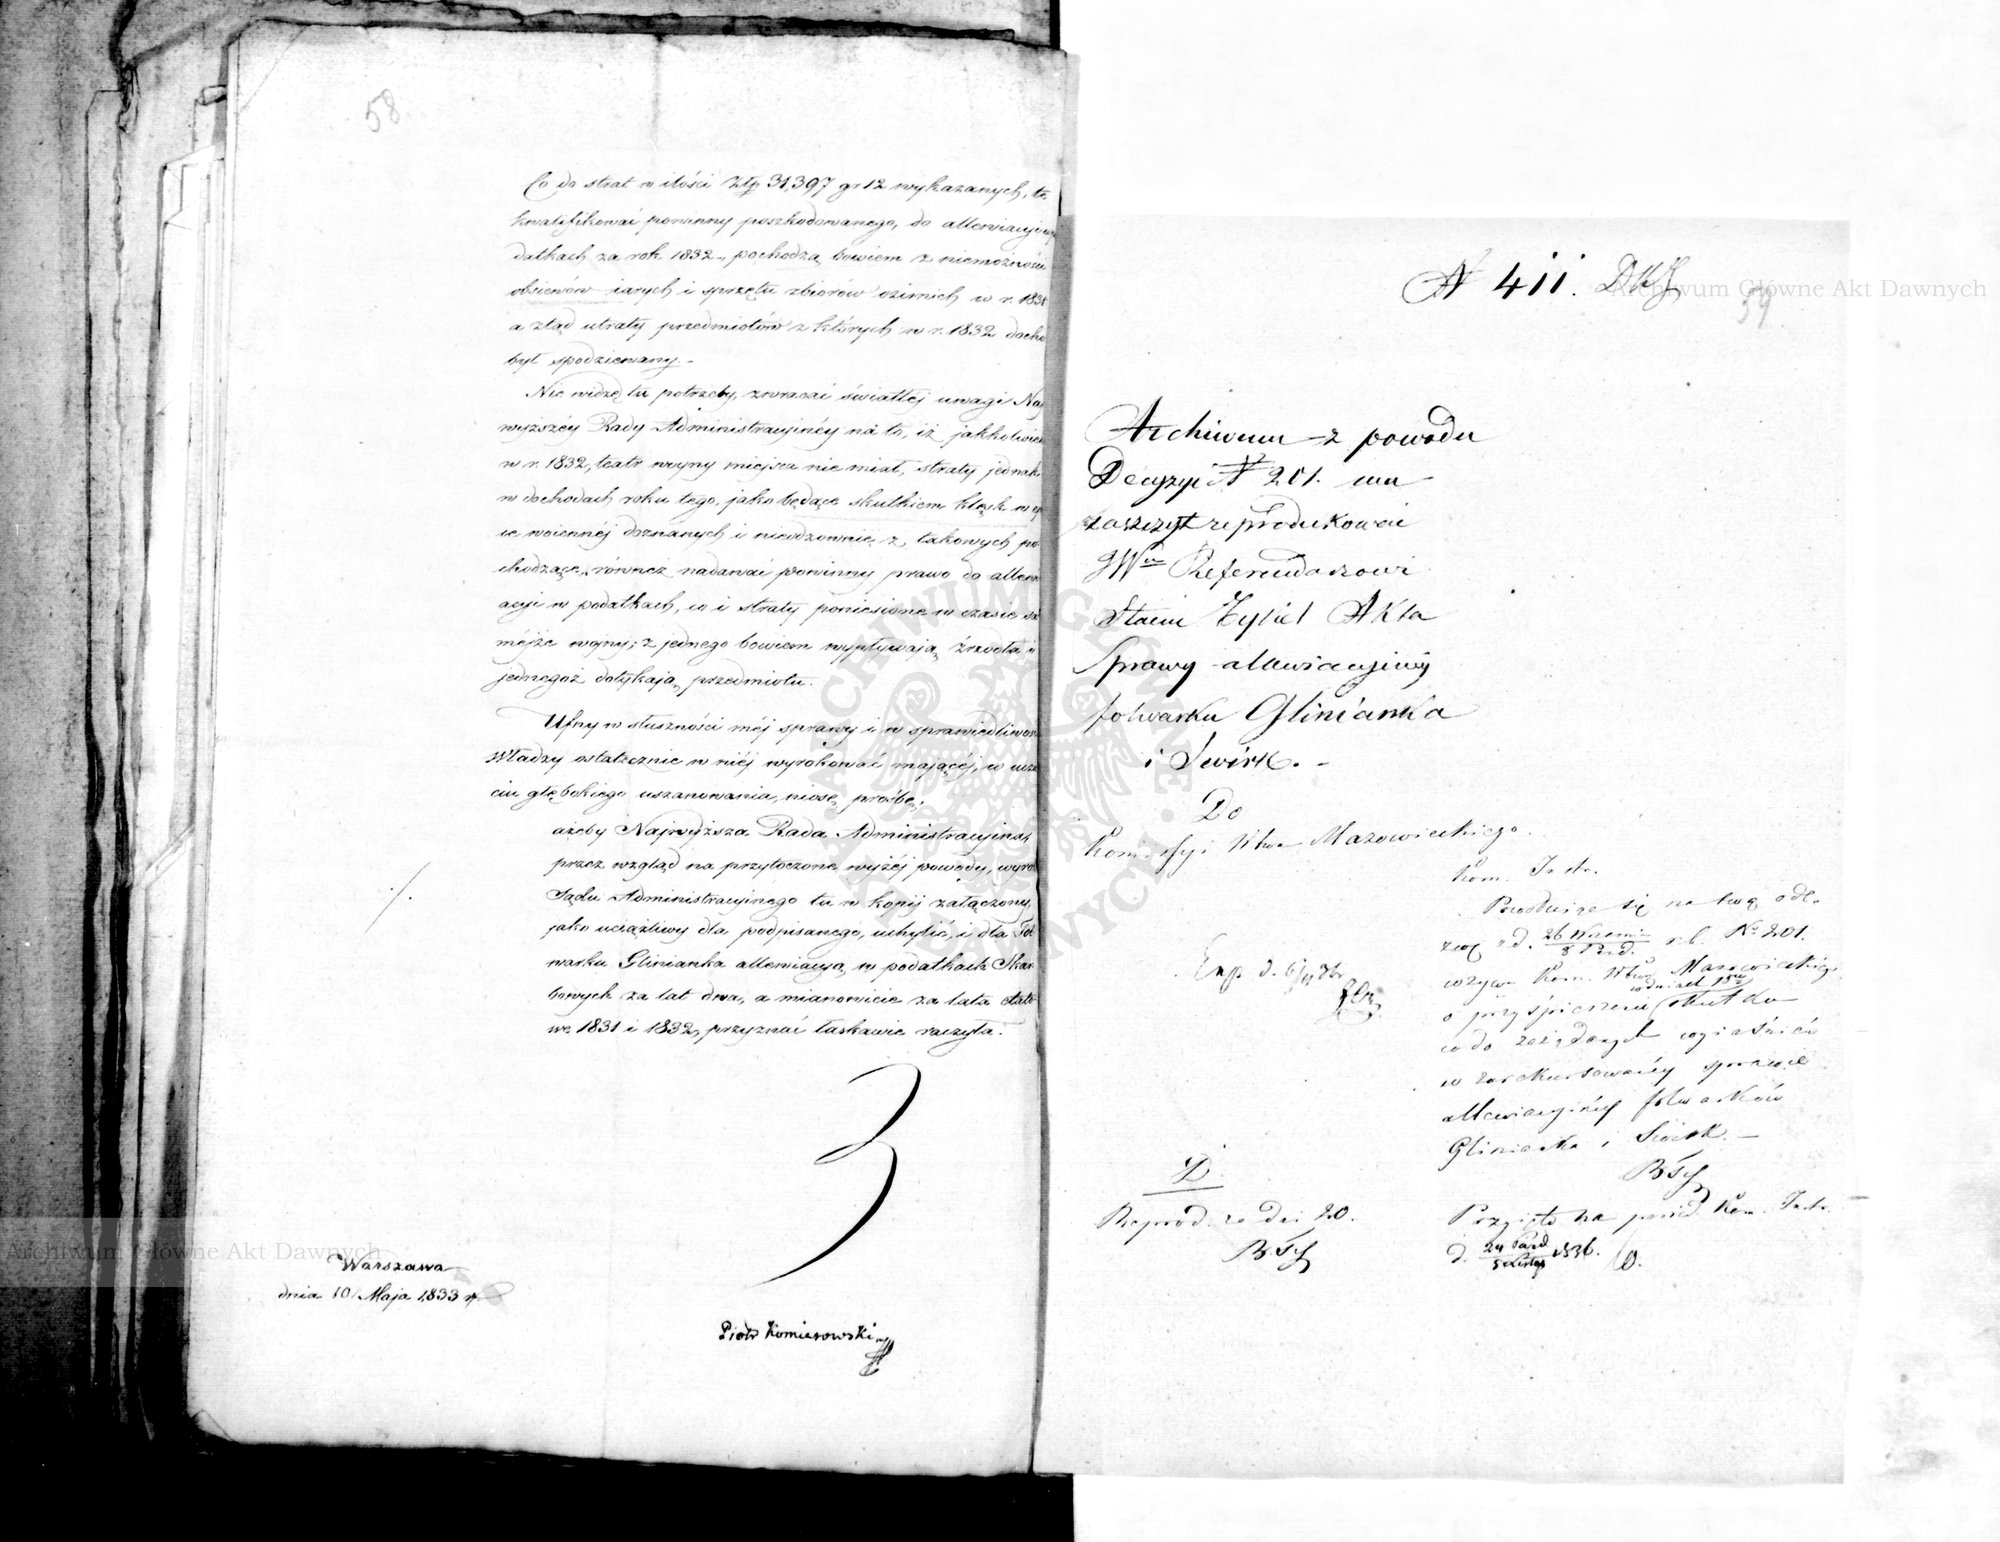 58
Co do strat w ilości Złp 31,397 gr 12 wykazanych, te
kwalifikować powinny poszkodowanego, do allewiacyi w po
datkach za rok 1832, pochodzą bowiem z niemożności
obsiewów jarych i sprzętu zbiorów ozimich w r. 1831
a ztąd utraty przedmiotów z których w r. 1832 docho
był spodziewany.-
Nie widzę tu potrzeby, zwracać światłej uwagi Na
wyższéy Rady Administracyinéy na to, iż jakkolwiek
w r. 1832, teatr woyny miejsca nie miał, straty jednak
w dochodach roku tego, jako będące skutkiem klęsk w
ie woiennéj doznanych i nieodzownie z takowych po
chodzące, równeż nadawać powinny prawo do allewi
acyi w podatkach, co i straty poniesione w czasie sa
méjże wojny; z jednego bowiem wypływają źrzódła i
jednegoż dotykają przedmiotu.
Ufny w słuszności méj sprawy i w sprawiedliwości
Władzy ostatecznie w niéj wyrokować mającéj, w ucz
ciu głębokiego uszanowania, niosę prośbę,
ażeby Najwyższa Rada Administracyina,
przez wzgląd na przytoczone wyżéj powody, wyrok
Sądu Administracyjnego tu w kopij załączony,
jako uciążliwy dla podpisanego, uchylić, i dla Fol
warku Glinianka allewiacyą w podatkach Skar
bowych za lat dwa, a mianowicie za lata
1831 i 1832, przyznać łaskawie raczyła.
./.
Warszawa
dnia 10 Maja 1833 r.
Piotr Komierowski
N 411.
59
Archiwum z powodu
Decyzyi N 201. ma
zaszczyt reprodukować
JWu Referendarzowi
Stanu Tykel Akta
Sprawy allewiacyinéy
folwarku Glinianka
i Świrk. -
Do
Komissyi Wtwa Mazowieckiego.
Kom. Instr.
Powołuiąc się na swą ode
zwę z d. 26 Wrześnie / 8 Paźd. r. b. No 201.
wzywa Kom. Wtwa Mazowieckiego
o przyśpieszenie skutku
co do żądanych wyiaśnień
w zarekursowanéy sprawie
allewiacyinéy folwarków
Glinianka i Świrk. -
Exp. d.
D
Reprod. za dni 20.
Przyięto na posied. Kom. Instr.
d. 24 Paźd. / 5 Listop 1836.
Archiwum Główne Akt Dawnych
Archiwum Główne Akt Dawnych
ARCHIWUM GŁÓWNE AKT DAWNYCH